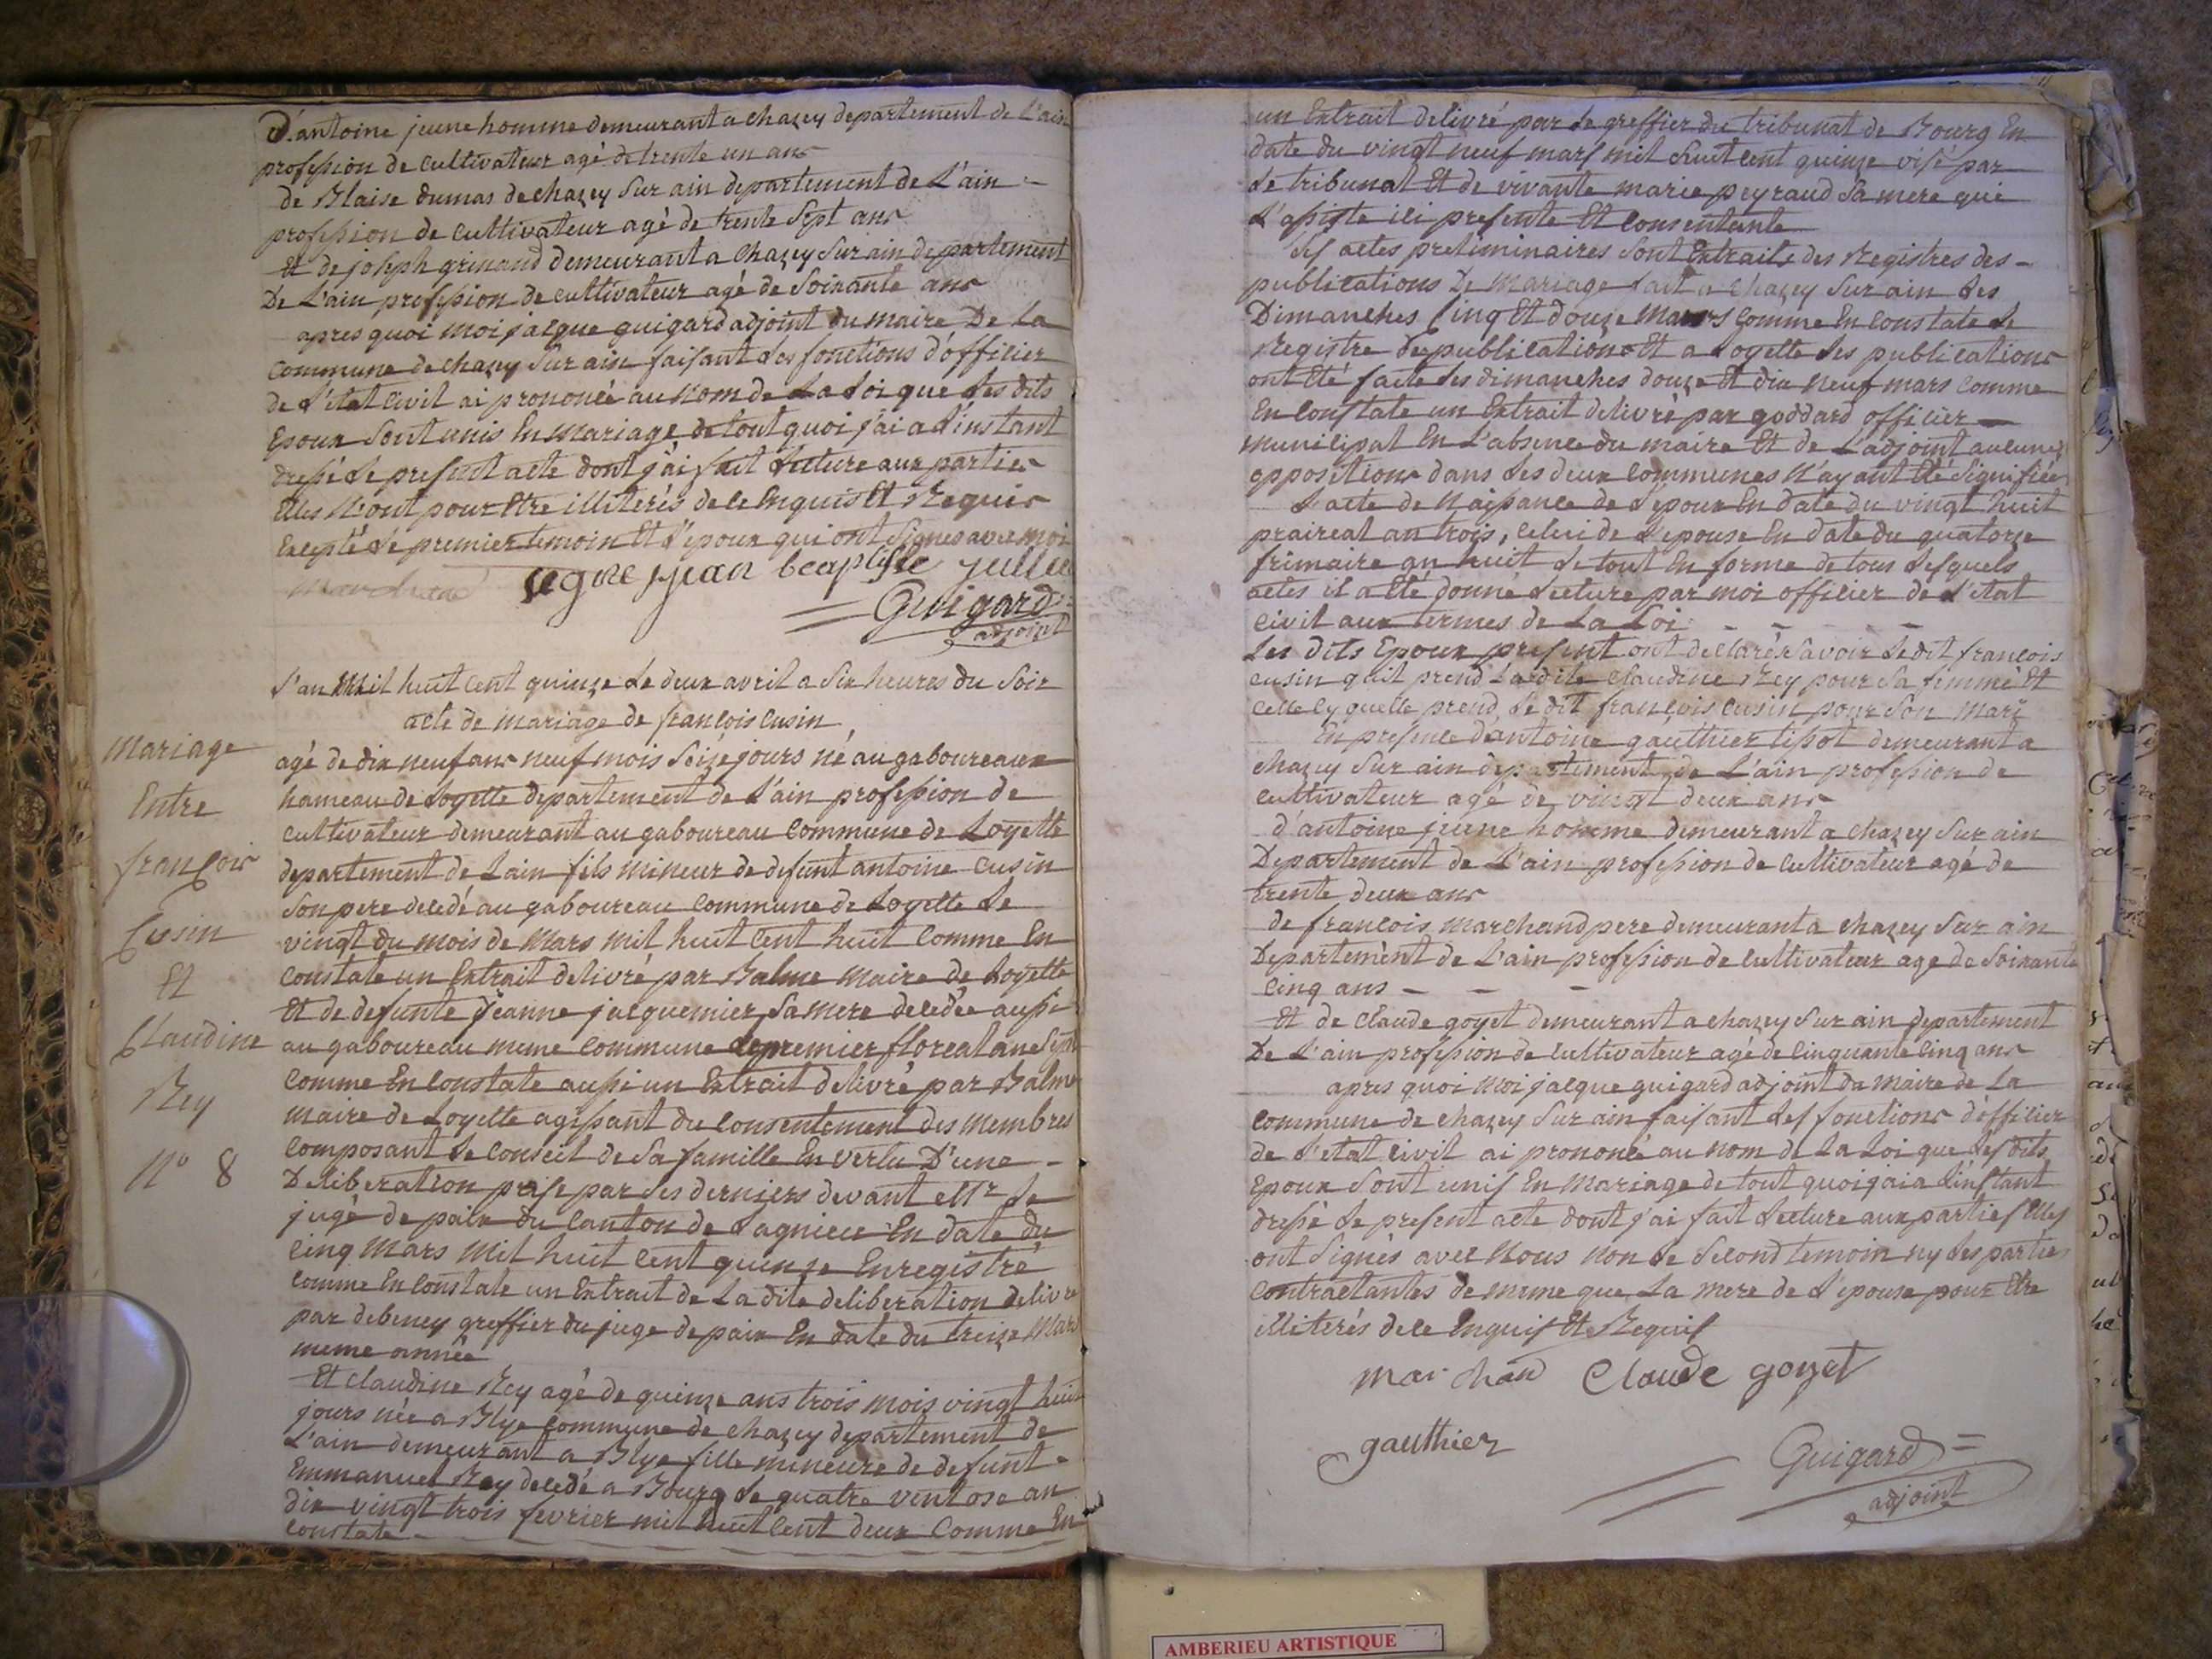 D'antoine jeune homme demeurant a chazey departement de L'ain
profession de cultivateur agé de trente un ans
de Blaise dumas de chazey Sur ain departement de L'ain
profession de cultivateur agé de trente Sept ans
Et de joseph grinand demeurant a Chazey Sur ain departement
De L'ain profession de cultivateur agé de Soixante ans
apres quoi moi jacque guigard adjoint du maire De La
Commune de chazey Sur ain faisant Les fonctions d'officier
de L'etat civil ai prononcé au Nom de La Loi que Les dits
Epoux Sont unis En Mariage de tout quoi j'ai a L'instant
dressé Le present acte dont j'ai fait Lecture aux parties
Elles N'ont pour Etre illiterés de ce Enquis Et Requis
Excepté Le premier temoin Et L'epoux qui ont Signes avec moi
marchand signe jean beaptiste jullie
Guigard
adjoint
L'an Mil huit cent quinze Le deux avril a Six heures du Soir
acte de mariage de françois Cusin
Mariage
Entre
françois
Cusin
Et
Claudine
Rey
N° 8
agé de dix neuf ans neuf mois Seize jours né au gaboureaux
hameau de Loyette departement de L'ain profession de
cultivateur demeurant au gaboureau Commune de Loyette
departement de Lain fils Mineur de defunt antoine Cusin
Son pere decedé au gaboureau Commune de Loyette Le
vingt du mois de Mars mil huit Cent huit Comme En
Constate un Extrait delivré par Balme Maire de Loyette
Et de defunte jeanne jacquemier Sa mere decedée aussi
au gaboureau meme Commune Le premier floreal ane Sept
Comme En Constate aussi un Extrait delivré par Balme
maire de Loyette agissant du Consentement des Membres
Composant Le Conseil de Sa famille En vertu D'une
Deliberation prise par Les derniers devant Mr Le
juge de paix du Canton de Lagnieu En date du
Cinq Mars Mil huit Cent quinze Enregistré
Comme En Constate un Extrait de La dite deliberation delivré
par debeney greffier du juge de paix En date du treize Mars
meme année
Et Claudine Rey agé de quinze ans trois mois vingt huit
jours née a Blye Commune de chazey departement de
L'ain demeurant a Blye fille mineure de defunt
Emmanuel Rey decedé a Bourg Le quatre ventose an
dix vingt trois fevrier mil huit Cent deux Comme En
Constate
un Extrait delivré par Le greffier du tribunal de Bourg En
date du vingt neuf mars mil huit Cent quinze visé par
Le tribunal Et de vivante marie peyraud Sa mere qui
L'assiste ici presente Et Consentante
Les actes preliminaires Sont Extraits des Registres des
publications De Mariage fait a Chazey Sur ain Les
Dimanches Cinq Et Douze Mars Comme En Constate Le
Registre de publications Et a Loyette Les publications
ont Eté faite Les dimanches douze Et dix neuf mars Comme
En Constate un Extrait delivré par goddard officier
municipal En L'absence du maire Et de L'adjoint aucunes
oppositions dans Les deux Communes N'ayant Eté Signifiée
L'acte de Naissance de L'epoux En date du vingt huit
praireal an trois, Celui de L'epouse En date du quatorze
frimaire an huit Le tout En forme de tous Lesquels
actes il a Eté donné Lecture par moi officier de L'etat
Civil aux termes de La Loi
Les dits Epoux present ont declarés Savoir Le dit françois
Cusin quil prend La dite Claudine Rey pour Sa femme Et
Celle Cy quelle prend Le dit françois Cusin pour Son Mari
En presence d'antoine gauthier tissot demeurant a
Chazey Sur ain departement de L'ain profession de
Cultivateur agé de vingt deux ans
d'antoine jeune homme demeurant a chazey Sur ain
Departement de L'ain profession de Cultivateur agé de
trente deux ans
de francois marchand pere demeurant a chazey Sur ain
Departement de L'ain profession de Cultivateur age de Soixante
Cinq ans
Et de Claude goyet demeurant a chazey Sur ain departement
De L'ain profession de Cultivateur agé de Cinquante Cinq ans
apres quoi Moi jacque guigard adjoint du Maire de La
Commune de chazey Sur ain faisant Les fonctions d'officier
de L'etat Civil ai prononcé au nom de La Loi que Les dits
Epoux Sont unis En Mariage de tout quoi jai a L'instant
dressé Le present acte dont j'ai fait Lecture aux parties Elles
ont Signés avec Nous Non Le Second temoin ny Les parties
Contractantes de meme que La mere de L'epouse pour Etre
illiterés de ce Enquis Et Requis
marchand Claude goyet
gauthier
Guigard
adjoint
AMBERIEU ARTISTIQUE